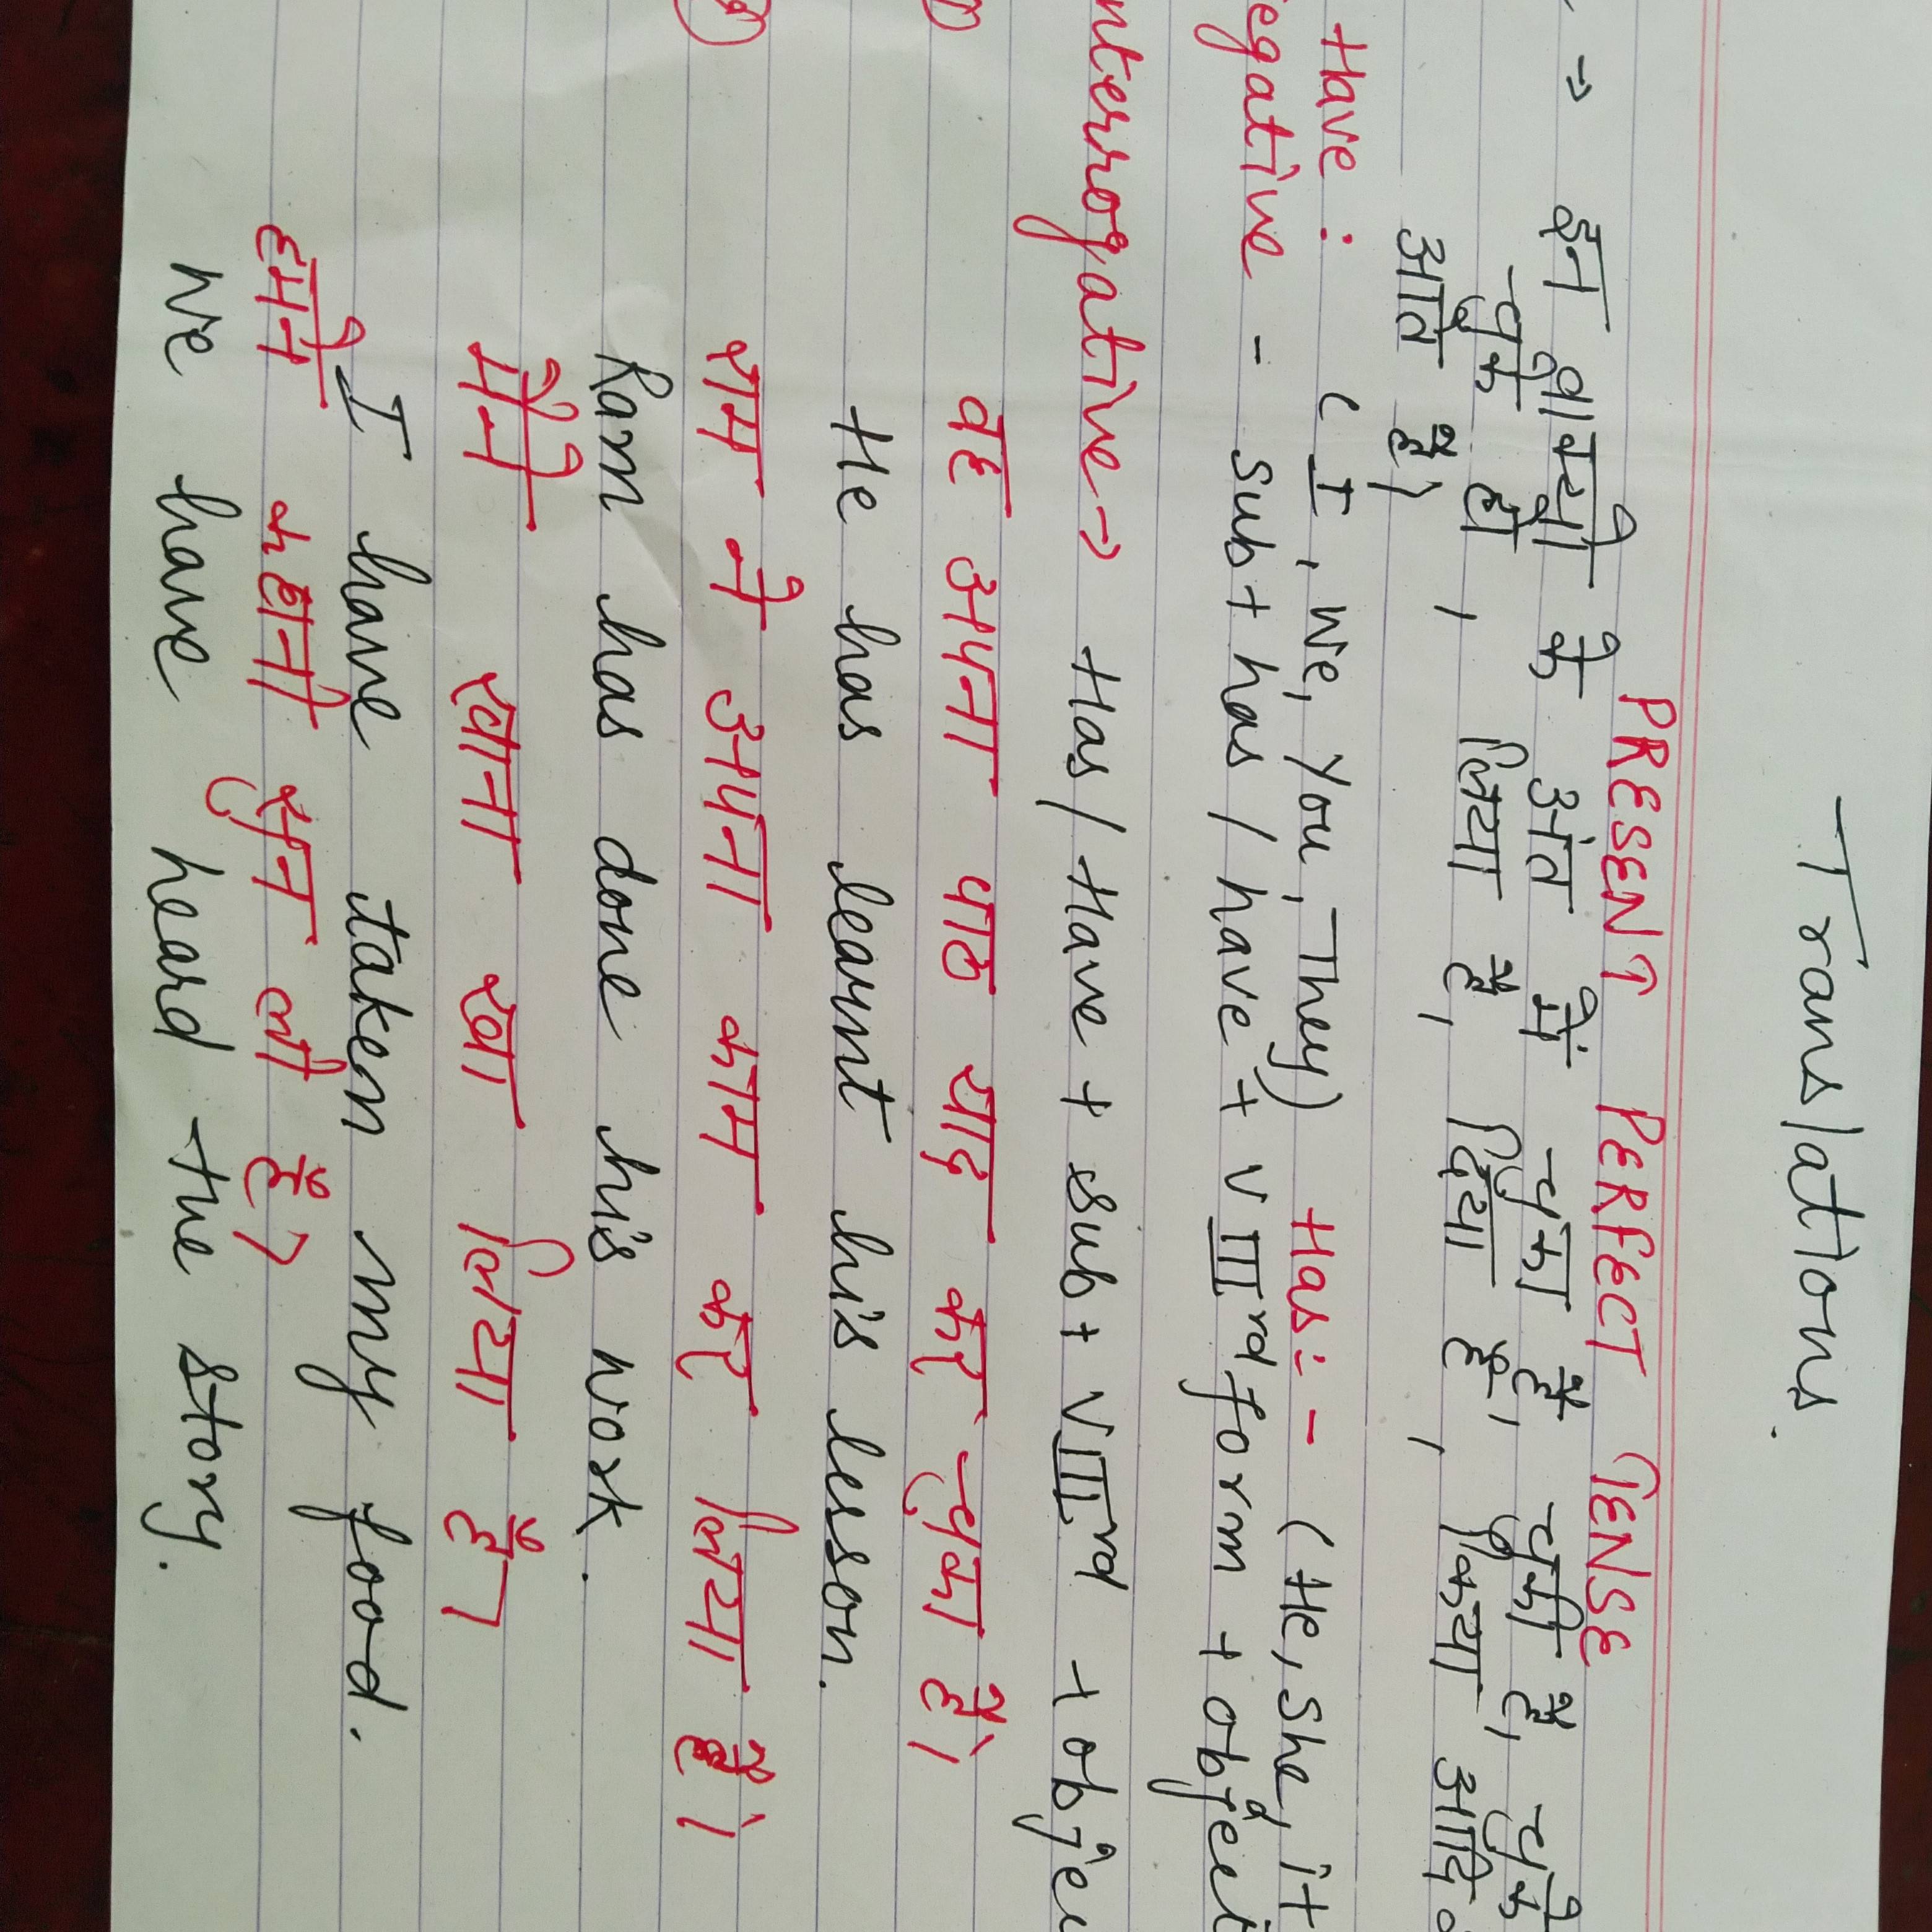 Translations.
PRESENT PERFECT TENSE
→ इन वाक्यो के अंत में चुका है, चुकी है, चुके
चुके हो, लिया है, दिया है, किया आदि
आते है।
Have : ( I, We, You, They) Has :- (He, She, it
egative - Sub + has / have + V IIIrd form + object
nterrogative → Has / Have + sub + VIIIrd + objec
वह अपना पाठ याद कर चुका है।
He has learnt his lesson.
राम ने अपना काम कर लिया है।
Ram has done his work.
मैने खाना खा लिया है।
I have taken my food.
हमने कहानी सुन ली है।
We have heard the story.